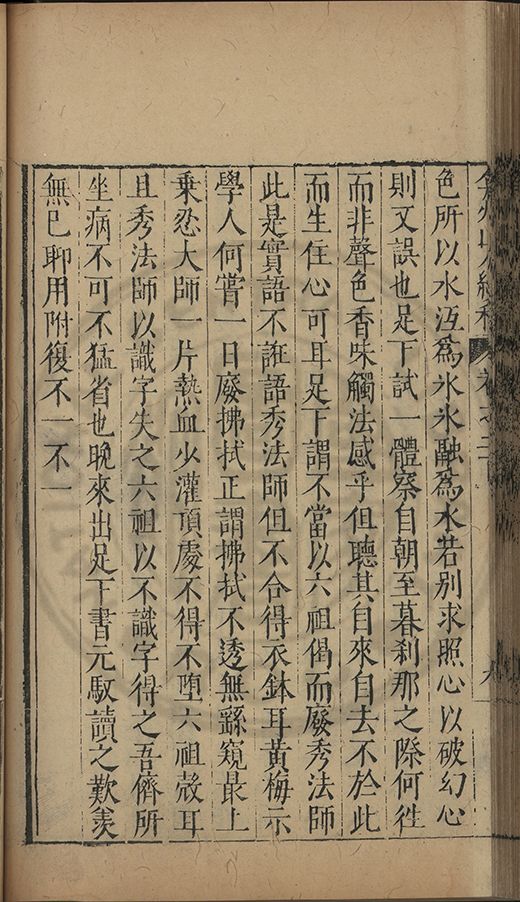 色所以水沍爲氷氷融爲水若别求照心以破幻心
則又誤也足下試一體察自朝至暮刹那之際何徃
而非聲色香味觸法感乎但聽其自來自去不於此
而生住心可耳足下謂不當以六祖偈而廢秀法師
此是實語不誑語秀法師但不合得衣鉢耳黄梅示
學人何嘗一日廢拂拭正謂拂拭不透無繇窺最上
乗忍大師一片熱血少灌頂處不得不墮六祖殻耳
且秀法師以識字失之六祖以不識字得之吾儕所
坐病不可不猛省也晩來出足下書元馭讀之歎羨
無已聊用附復不一不一